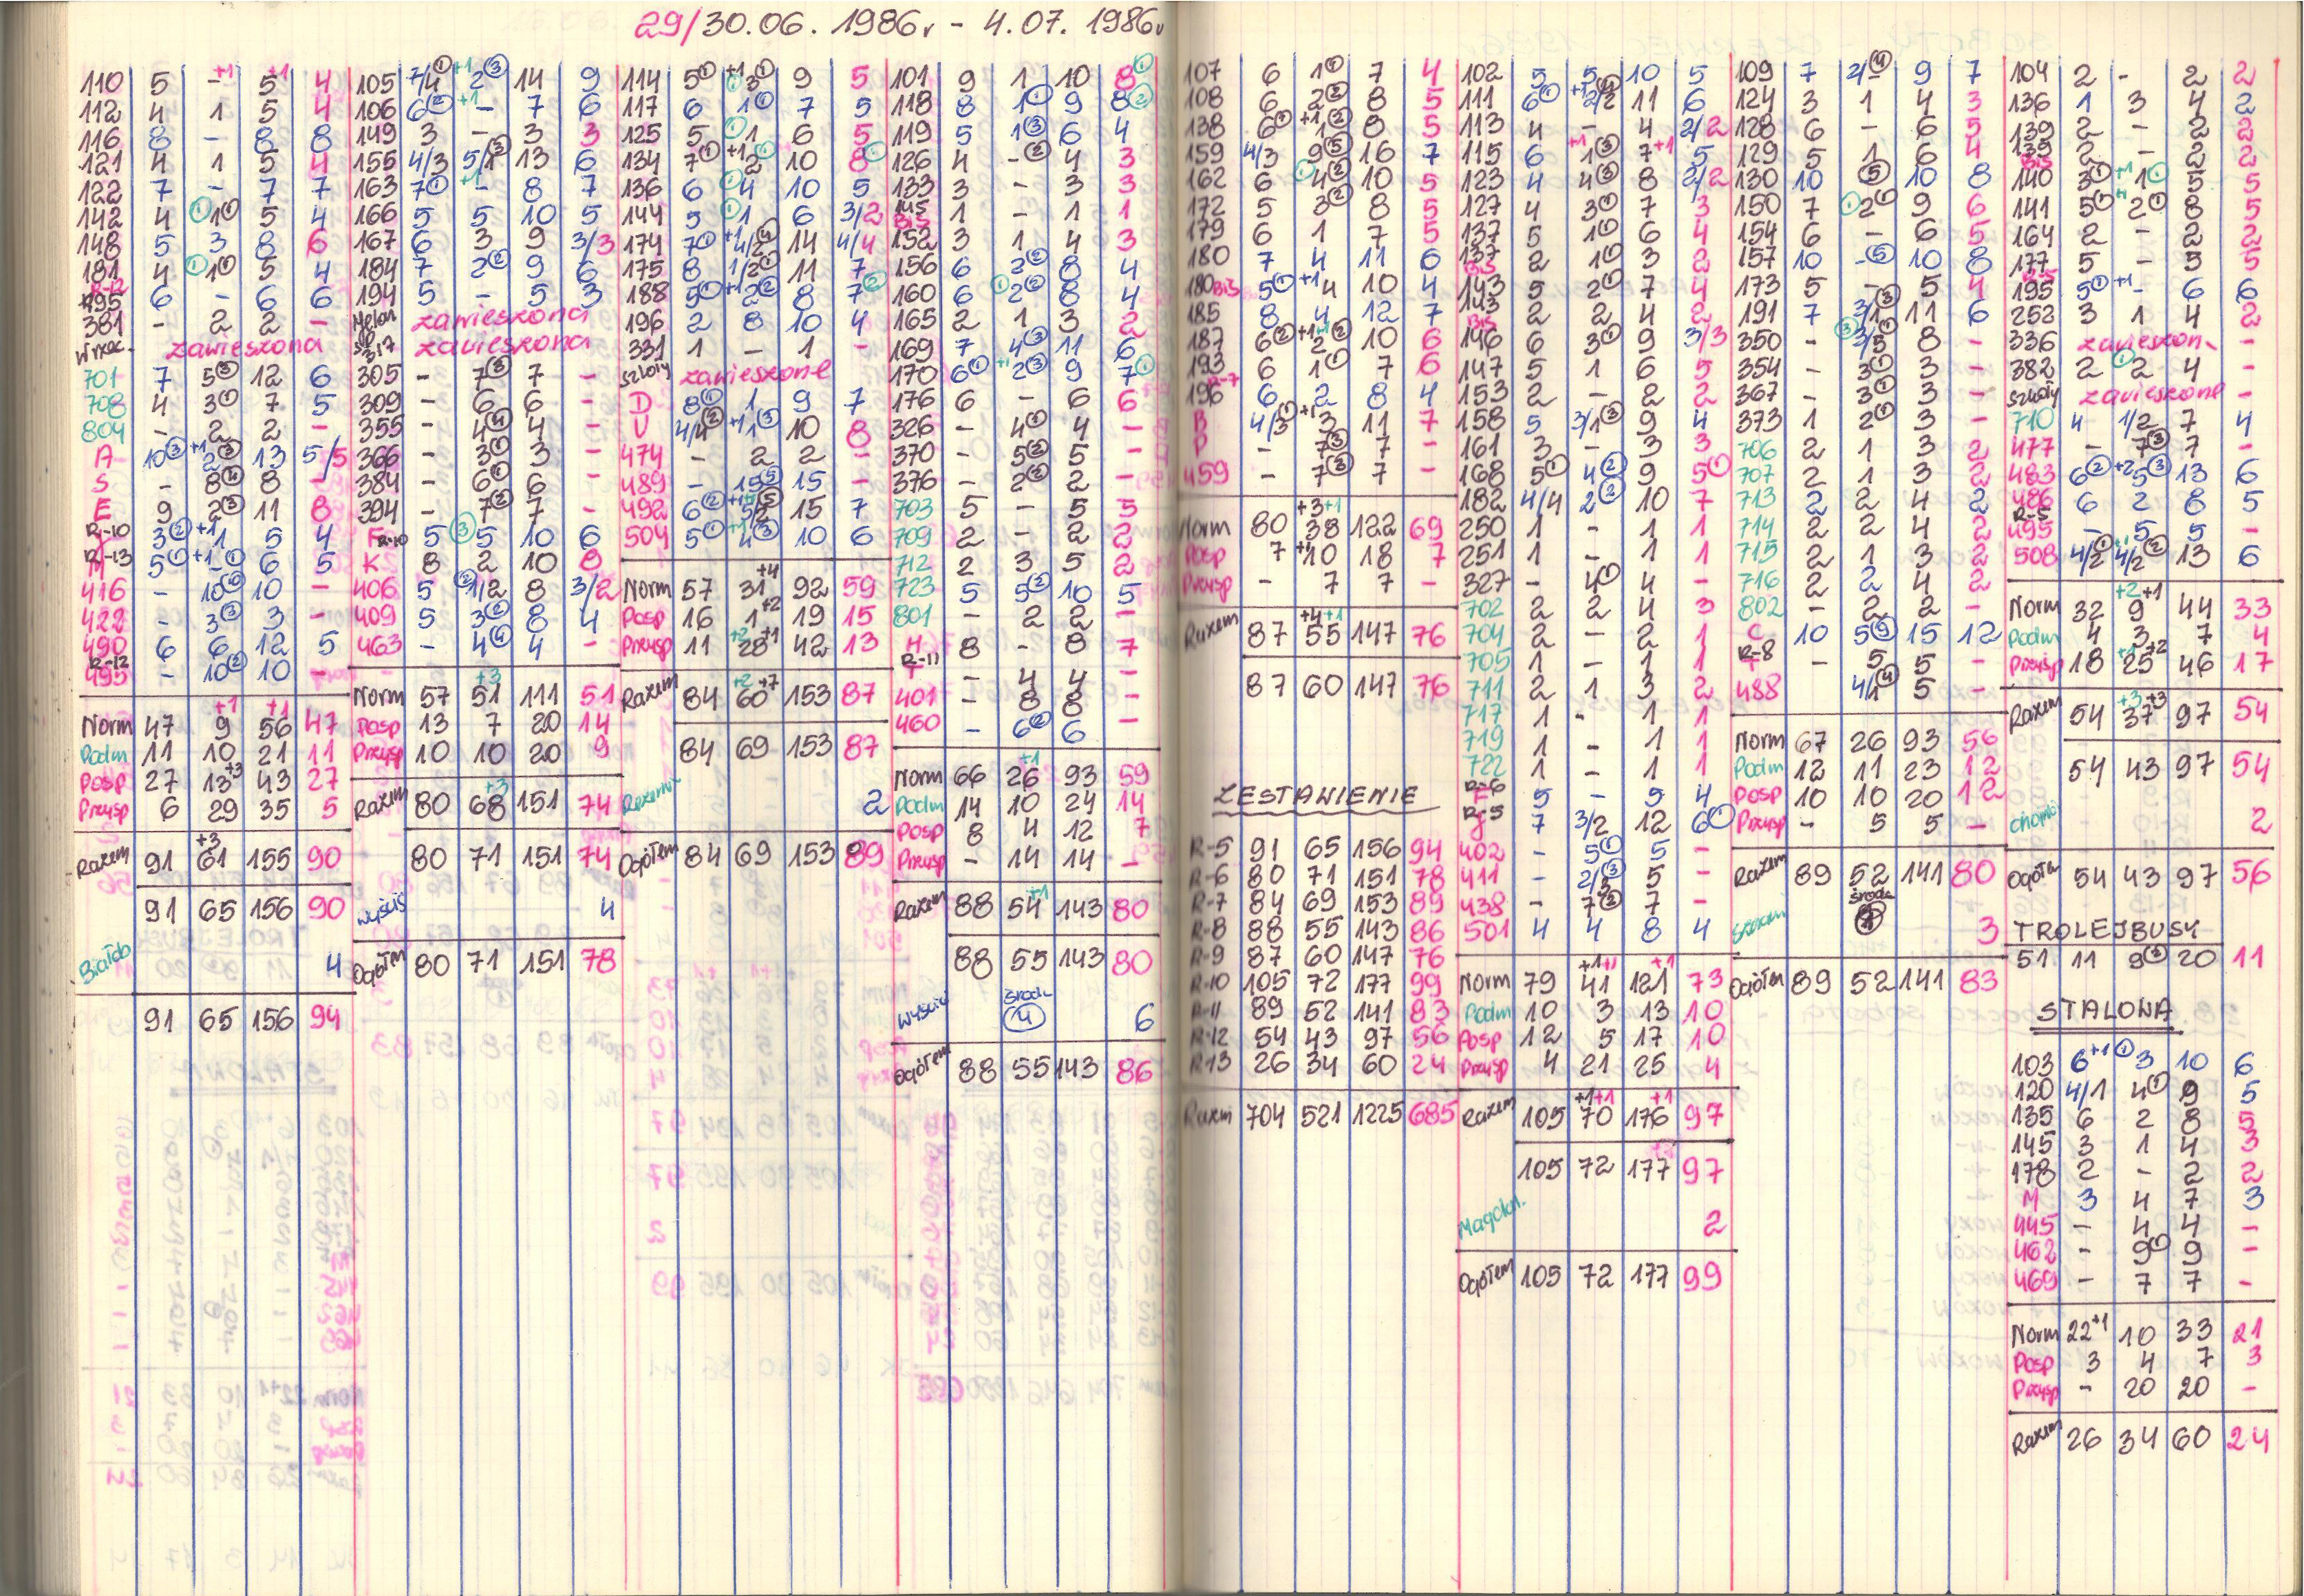 29/30.06. 1986r - 4.07. 1986r
110 5 - +1 5 +1 4
112 4 1 5 4
116 8 - 8 8
121 4 1 5 4
122 7 - 7 7
142 4 ① 1① 5 4
148 5 3 8 6
181 4 ① 1① 5 4
R-12
195 6 - 6 6
381 - 2 2 -
zawieszona
701 7 5③ 12 6
708 4 3① 7 5
804 - 2 2 -
A 10③ +1 2③ 13 5/5
S - 8④ 8 -
E 9 2③ 11 8
R-10
3② +1 1 5 4
R-13
5① +1 -① 6 5
416 - 10⑥ 10 -
422 - 3③ 3 -
490 6 6 12 5
R-12
495 - 10② 10 -
Norm 47 9 +1 56 +1 47
Podm 11 10 21 11
Posp 27 13 +3 43 27
Przysp 6 29 35 5
Razem 91 61 +3 155 90
91 65 156 90
Białob 4
91 65 156 94
105 7/4① +1 2③ 14 9
106 6② +1 - 7 6
149 3 - 3 3
155 4/3 5/1③ 13 6
163 7① +1 - 8 7
166 5 5 10 5
167 6 3 9 3/3
184 7 2② 9 6
194 5 - 5 3
Melon zawieszona
317 zawieszona
305 - 7③ 7 -
309 - 6 6 -
355 - 4④ 4 -
366 - 3① 3 -
384 - 6① 6 -
394 - 7② 7 -
F R-10 5 ③ 5 10 6
K 8 2 10 8
406 5 ② 1/2 8 3/2
409 5 3② 8 4
463 - 4④ 4 -
Norm 57 51 +3 111 51
Posp 13 7 20 14
Przysp 10 10 20 9
Razem 80 68 +3 151 74
80 71 151 74
Wyścig 4
Ogółem 80 71 151 78
114 5① +1 3① 9 5
117 6 1① 7 5
125 5 ① 1 6 5
134 7① +1 2① 10 8①
136 6 ① 4 10 5
144 5 ① 1 6 3/2
174 7① +1 4/2④ 14 4/4
175 8 1/2① 11 7
188 5① +1 2② 8 7②
196 2 8 10 4
331 1 - 1 -
szkoły zawieszone
D 8① 1 9 7
U 4/4② +1 1③ 10 8
474 - 2 2 -
489 - 15⑤ 15 -
492 6② +1 5/2⑤ 15 7
504 5① +1 4③ 10 6
Norm 57 31 +4 92 59
Posp 16 1 +2 19 15
Przysp 11 28 +2 +1 42 13
Razem 84 60 +2 +7 153 87
84 69 153 87
Rezerwa 2
Ogółem 84 69 153 89
101 9 1 10 8①
118 8 1① 9 8②
119 5 1③ 6 4
126 4 -② 4 3
133 3 - 3 3
145 BIS 1 - 1 1
152 3 1 4 3
156 6 2② 8 4
160 6 ① 2② 8 4
165 2 1 3 2
169 7 4③ 11 6
170 6① +1 2③ 9 7①
176 6 - 6 6
326 - 4① 4 -
370 - 5② 5 -
376 - 2② 2 -
703 5 - 5 5
709 2 - 2 2
712 2 3 5 2
723 5 5② 10 5
801 - 2 2 -
H 8 - 8 7
R-11
T - 4 4 -
401 - 8 8 -
460 - 6② 6 -
Norm 66 26 +1 93 59
Podm 14 10 24 14
Posp 8 4 12 7
Przysp - 14 14 -
Razem 88 54 +1 143 80
88 55 143 80
Wyścig środa ④ 6
Ogółem 88 55 143 86
107 6 1① 7 4
108 6 2② 8 5
138 6① +1 1② 8 5
159 4/3 9⑤ 16 7
162 6 ① 4② 10 5
172 5 3② 8 5
179 6 1 7 5
180 7 4 11 6
180 BIS 5① +1 4 10 4
185 8 4 12 7
187 6② +1 +1 2② 10 6
193 6 1① 7 6
R-7
196 6 2 8 4
B 4/3① +1 3 11 7
P - 7③ 7 -
459 - 7③ 7 -
Norm 80 38 +3 +1 122 69
Posp 7 10 +1 18 7
Przysp - 7 7 -
Razem 87 55 +4 +1 147 76
87 60 147 76
ZESTAWIENIE
R-5 91 65 156 94
R-6 80 71 151 78
R-7 84 69 153 89
R-8 88 55 143 86
R-9 87 60 147 76
R-10 105 72 177 99
R-11 89 52 141 83
R-12 54 43 97 56
R-13 26 34 60 24
Razem 704 521 1225 685
102 5 5 10 5
111 6① +1 2/2④ 11 6
113 4 - 4 2/2
115 6 +1 1③ 7 +1 5
123 4 4③ 8 2/2
127 4 3① 7 3
137 5 1① 6 4
137 BIS 2 1① 3 2
143 5 2① 7 4
143 BIS 2 2 4 2
146 6 3① 9 3/3
147 5 1 6 5
153 2 - 2 2
158 5 3/1③ 9 4
161 3 - 3 3
168 5① 4② 9 5①
182 4/4 2② 10 7
250 1 - 1 1
251 1 - 1 1
327 - 4① 4 -
702 2 2 4 3
704 2 - 2 1
705 1 - 1 1
711 2 1 3 2
717 1 - 1 1
719 1 - 1 1
722 1 - 1 1
R-6
F 5 - 5 4
R-5
J 7 3/2 12 6①
402 - 5① 5 -
411 - 2/3③ 5 -
438 - 7② 7 -
501 4 4 8 4
Norm 79 41 +1 +1 121 +1 73
Podm 10 3 13 10
Posp 12 5 17 10
Przysp 4 21 25 4
Razem 105 70 +1 +1 176 +1 97
105 72 177 97
2
Ogółem 105 72 177 99
109 7 2/-④ 9 7
124 3 1 4 3
128 6 - 6 5
129 5 1 6 4
130 10 ⑤ 10 8
150 7 ① 2① 9 6
154 6 - 6 5
157 10 -⑤ 10 8
173 5 - 5 4
191 7 3/1③ 11 6
350 - ③ 3/5① 8 -
354 - 3① 3 -
367 - 3① 3 -
373 1 2① 3 -
706 2 1 3 2
707 2 1 3 2
713 2 2 4 2
714 2 2 4 2
715 2 1 3 2
716 2 2 4 2
802 - 2 2 -
C 10 5⑨ 15 12
R-8
T - 5 5 -
488 4/1④ 5 -
Norm 67 26 93 56
Podm 12 11 23 12
Posp 10 10 20 12
Przysp - 5 5 -
Razem 89 52 141 80
środa
3
Ogółem 89 52 141 83
104 2 - 2 2
136 1 3 4 2
139 2 - 2 2
139 BIS 2 - 2 2
140 3① +1 1① 5 5
141 5① +1 2① 8 5
164 2 - 2 2
177 5 - 5 5
R-5
195 5① +1 - 6 6
252 3 1 4 2
336 zawieszon. -
382 2 ① 2 4 -
szkoły zawieszone -
710 4 1/2 7 4
477 - 7③ 7 -
483 6② +2 5③ 13 6
486 6 2 8 5
R-5
495 - 5 5 -
508 4/2① +1 4/2② 13 6
Norm 32 9 +2 +1 44 33
Podm 4 3 7 4
Przysp 18 25 +1 +2 46 17
Razem 54 37 +3 +3 97 54
54 43 97 54
2
Ogółem 54 43 97 56
TROLEJBUSY
51 11 9② 20 11
STALOWA
103 6 +1 ① 3 10 6
120 4/1 4① 9 5
135 6 2 8 5
145 3 1 4 3
178 2 - 2 2
M 3 4 7 3
445 - 4 4 -
462 - 9① 9 -
469 - 7 7 -
Norm 22 +1 10 33 21
Posp 3 4 7 3
Przysp - 20 20 -
Razem 26 34 60 24